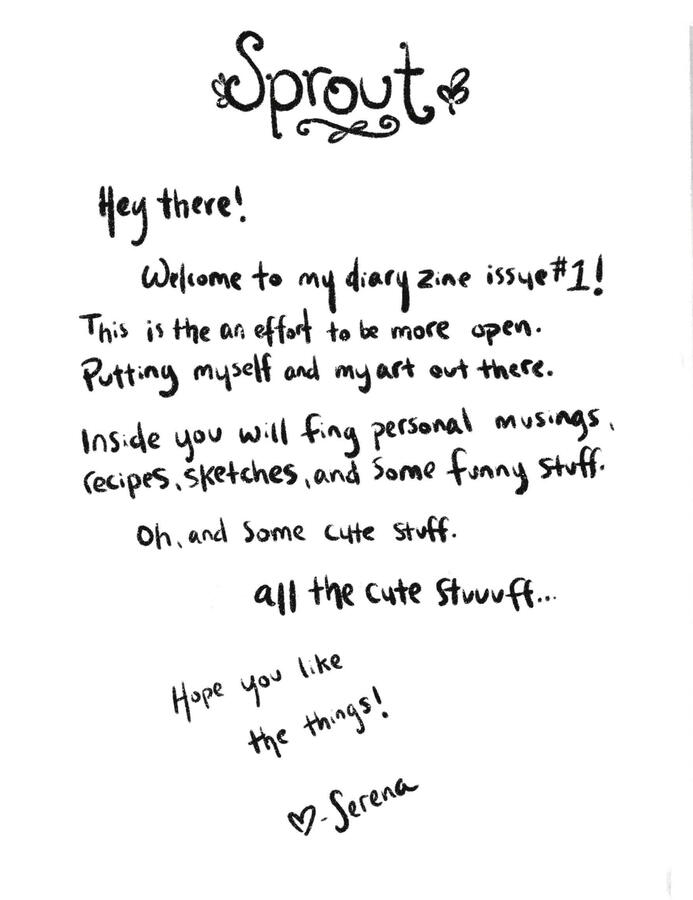 Sprout
Hey there!
Welcome to my diary zine issue #1!
This is the an effort to be more open.
Putting myself and my art out there.
Inside you will fing personal musings,
recipes, sketches, and some funny stuff.
Oh, and some cute stuff.
all the cute stuuuff...
Hope you like
the things!
♡-Serena